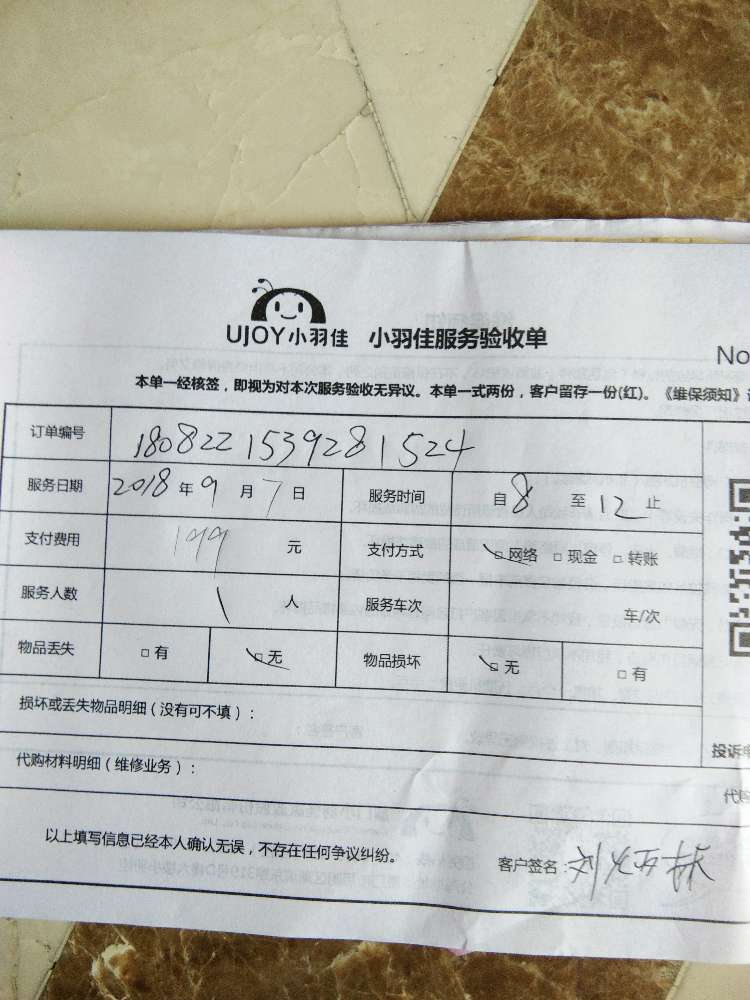 UJOY小羽佳 小羽佳服务验收单
No
本单一经核签，即视为对本次服务验收无异议。本单一式两份，客户留存一份(红)。《维保须知》
订单编号 1808221539281524
服务日期 2018年9月7日 服务时间 自8至12止
支付费用 199元 支付方式 □网络 □现金 □转账
服务人数 1人 服务车次 车/次
物品丢失 □有 □无 物品损坏 □无 □有
损坏或丢失物品明细（没有可不填）：
投诉
代购材料明细（维修业务）：
代购
以上填写信息已经本人确认无误，不存在任何争议纠纷。 客户签名：刘